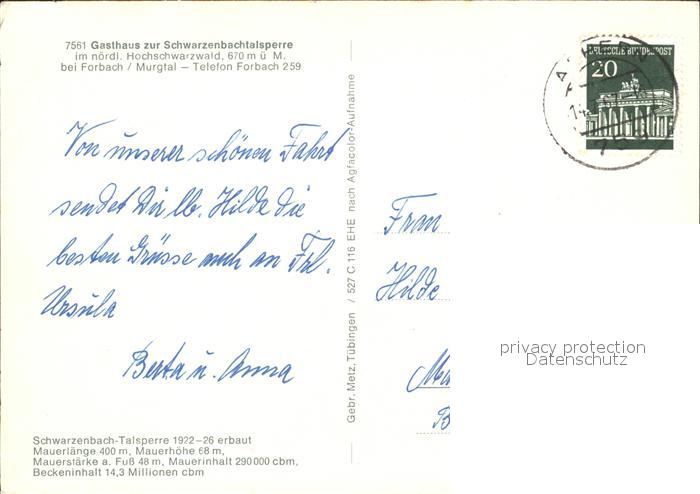 7561 Gasthaus zur Schwarzenbachtalsperre
im nördl. Hochschwarzwald, 670 m ü M.
bei Forbach / Murgtal — Telefon Forbach 259
DEUTSCHE BUNDESPOST
20
Von unserer schönen Fahrt
sendet Dir lb. Hilde die
besten Grüsse auch an Frl.
Ursula
Berta u. Anna
Gebr. Metz, Tübingen / 527 C 116 EHE nach Agfacolor-Aufnahme
Frau
Hilde
privacy protection
Datenschutz
Schwarzenbach-Talsperre 1922-26 erbaut
Mauerlänge 400 m, Mauerhöhe 68 m,
Mauerstärke a. Fuß 48 m, Mauerinhalt 290 000 cbm,
Beckeninhalt 14,3 Millionen cbm